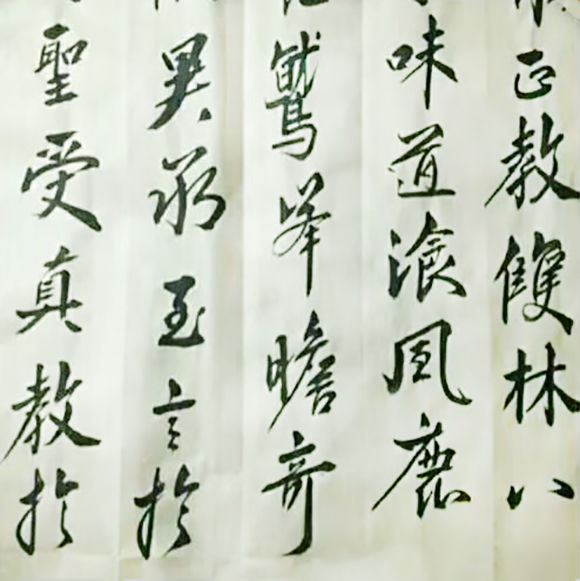 正教雙林八
味道湌風鹿
鷲峯瞻奇
異承至言於
聖受真教於